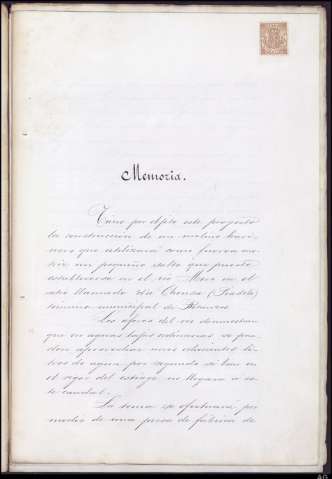 Memoria.
Tiene por objeto este proyecto
la construcción de un molino hari-
nero que utilizará como fuerza mo-
triz un pequeño salto que puede
establecerse en el río Mero en el
sitio llamado
término municipal de
Los aforos del río demuestran
que en aguas bajas ordinarias se pue-
den aprovechar mas ochocientos li-
tros de agua por segundo si bien en
el rigor del estiage no llegará a es-
te caudal.
La toma se efectuará por
medio de una presa de fábrica de